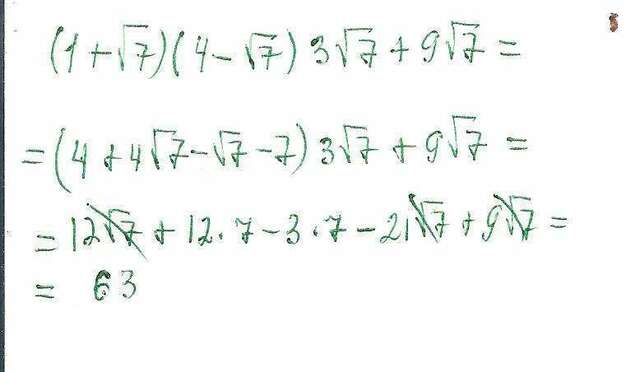 (1+√7)(4-√7) 3√7 + 9√7 =
= (4+4√7-√7-7) 3√7 + 9√7 =
= 12√7 + 12·7 - 3·7 - 21√7 + 9√7 =
= 63